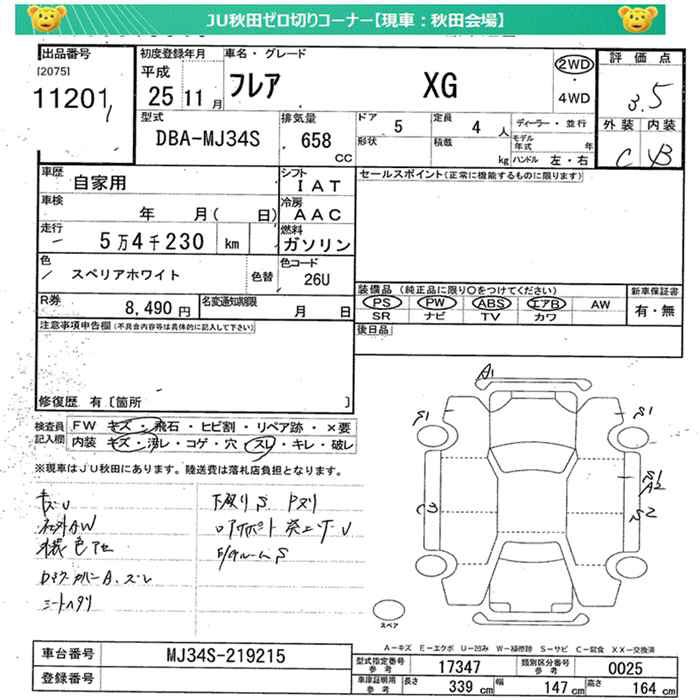 JU秋田ゼロ切りコーナー【現車:秋田会場】
出品番号
[2075]
11201
初度登録年月
平成
25 11月
車名・グレード
フレア XG
2WD
4WD
評価点
3.5
外装 内装
C B
型式
DBA-MJ34S
排気量
658
cc
ドア 5
定員 4 人
形状
積載 kg
ディーラー・並行
モデル年式 年
ハンドル 左・右
車歴
自家用
シフト
IAT
車検
年 月( 日)
冷房
AAC
走行
5万4千230 km
燃料
ガソリン
色
スペリアホワイト
色替
色コード
26U
R券
8,490円
名変通知期限
月 日
セールスポイント(正常に機能するものに限ります)
装備品(純正品に限り○をつけてください)
PS PW ABS エアB AW
SR ナビ TV カワ
新車保証書
有・無
後日品
注意事項申告欄(不具合内容等は具体的に記入して下さい)
修復歴 有〔箇所 〕
検査員
記入欄
FW キズ・飛石・ヒビ割・リペア跡・×要
内装 キズ・汚レ・コゲ・穴・スレ・キレ・破レ
※現車はJU秋田にあります。陸送費は落札店負担となります。
キズU
社外AW
シートヘタリ
下廻りS
A1
S1
S1
S1
A2
S2
スペア
A-キズ E-エクボ U-凹み W-補修跡 S-サビ C-腐食 XX-交換済
車台番号
MJ34S-219215
登録番号
型式指定番号
参考
17347
類別区分番号
参考
0025
車庫証明用
参考
長さ 339 cm
幅 147 cm
高さ 164 cm